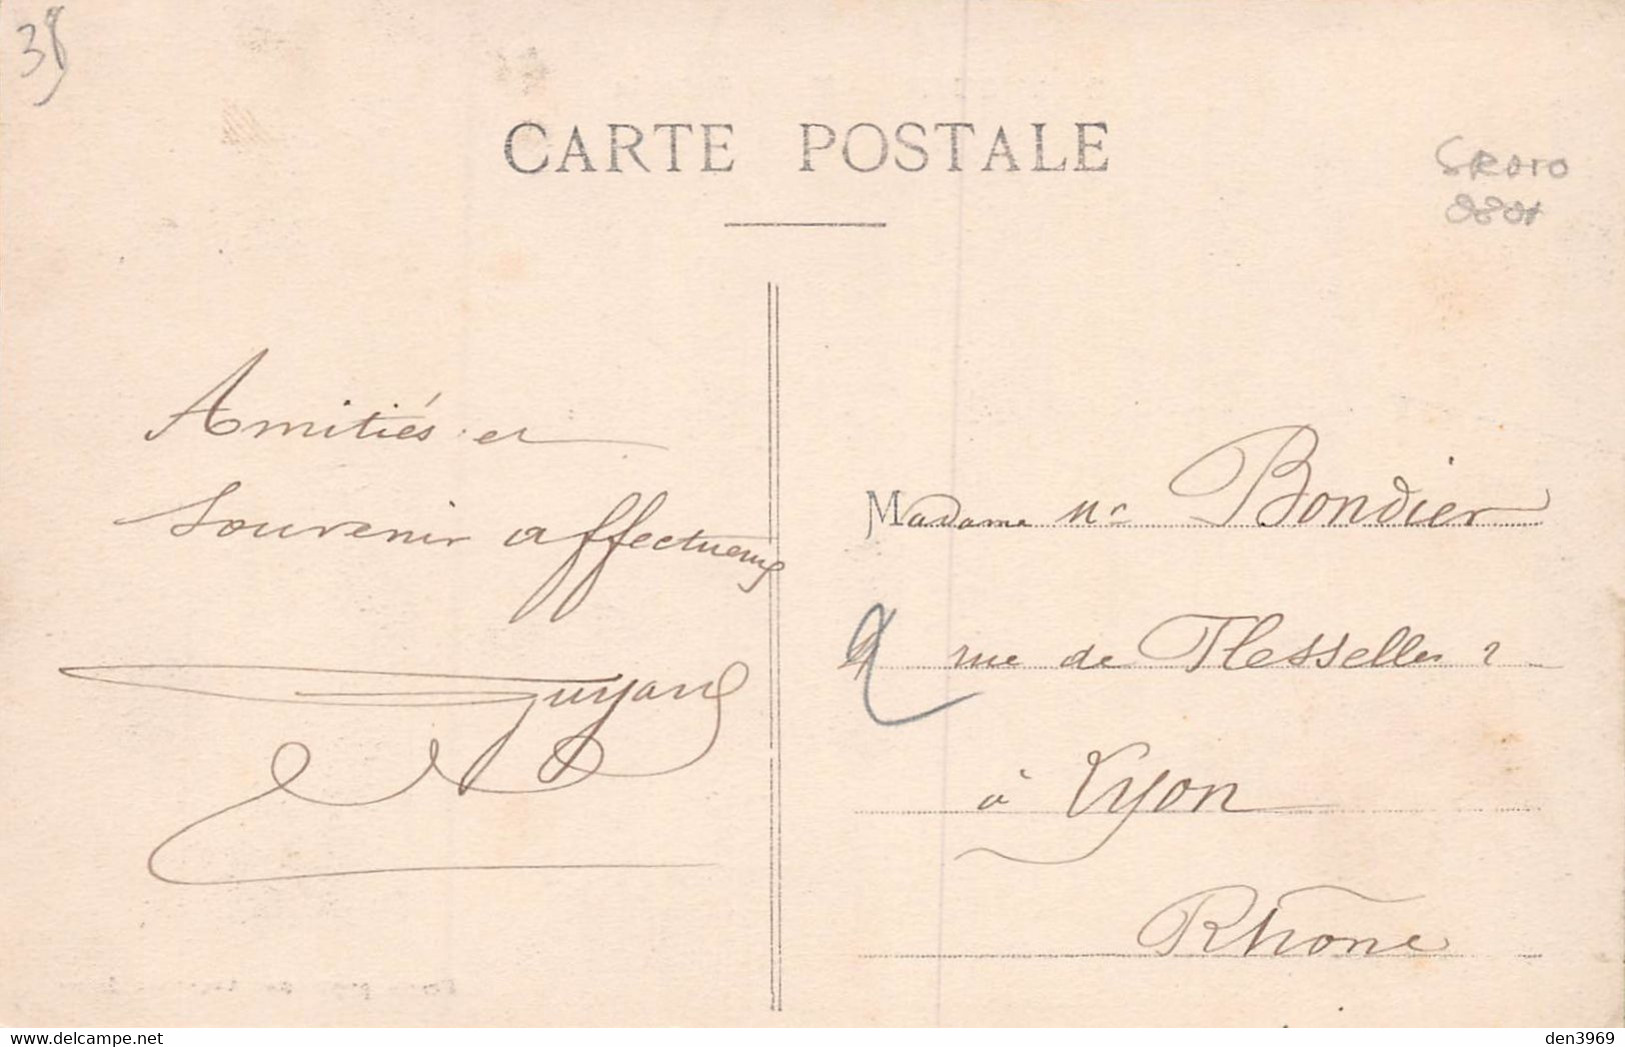 38
CARTE POSTALE
Amitiés et
souvenir affectueux
Guyard
Madame Vve Bondier
2 rue de Flesselles 2
à Lyon
Rhône
www.delcampe.net
den3969